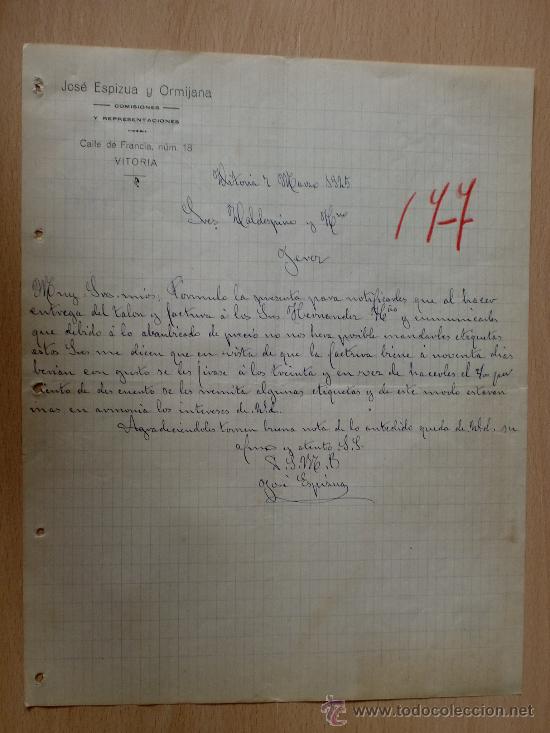 José Espizua y Ormijana
COMISIONES
Y REPRESENTACIONES
Calle de Francia, núm. 18
VITORIA
Vitoria 7 Marzo 1925
177
Sres. Valdespino y Hno
Jerez
Muy Sres. mios; Formulo la presente para notificarles que al hacer
entrega del talon y factura á los Sres Hernandez Hno y comunicarles
que debido á lo de precio no nos hera posible mandarles etiquetas
estos Sres me dicen que en vista de que la factura biene á noventa dias
berian con gusto se les jirase á los treinta y en vez de hacerles el por
ciento de descuento se les remita algunas etiquetas y de este modo estaran
mas en armonia los intereses de Vd.
Agradeciéndoles tomen buena nota de lo antedicho queda de Vd. su
afmo y atento S.S.
Q.S.M.B
José Espizua
www.todocoleccion.net